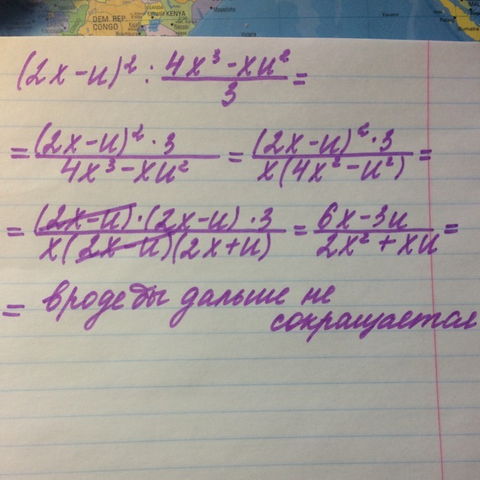 DEM. REP.
CONGO
KENYA
(2x-u)² : (4x³-xu²)/3 =
= ((2x-u)²·3)/(4x³-xu²) = ((2x-u)²·3)/(x(4x²-u²)) =
= ((2x-u)·(2x-u)·3)/(x(2x-u)(2x+u)) = (6x-3u)/(2x²+xu) =
= вроде бы дальше не
сокращается